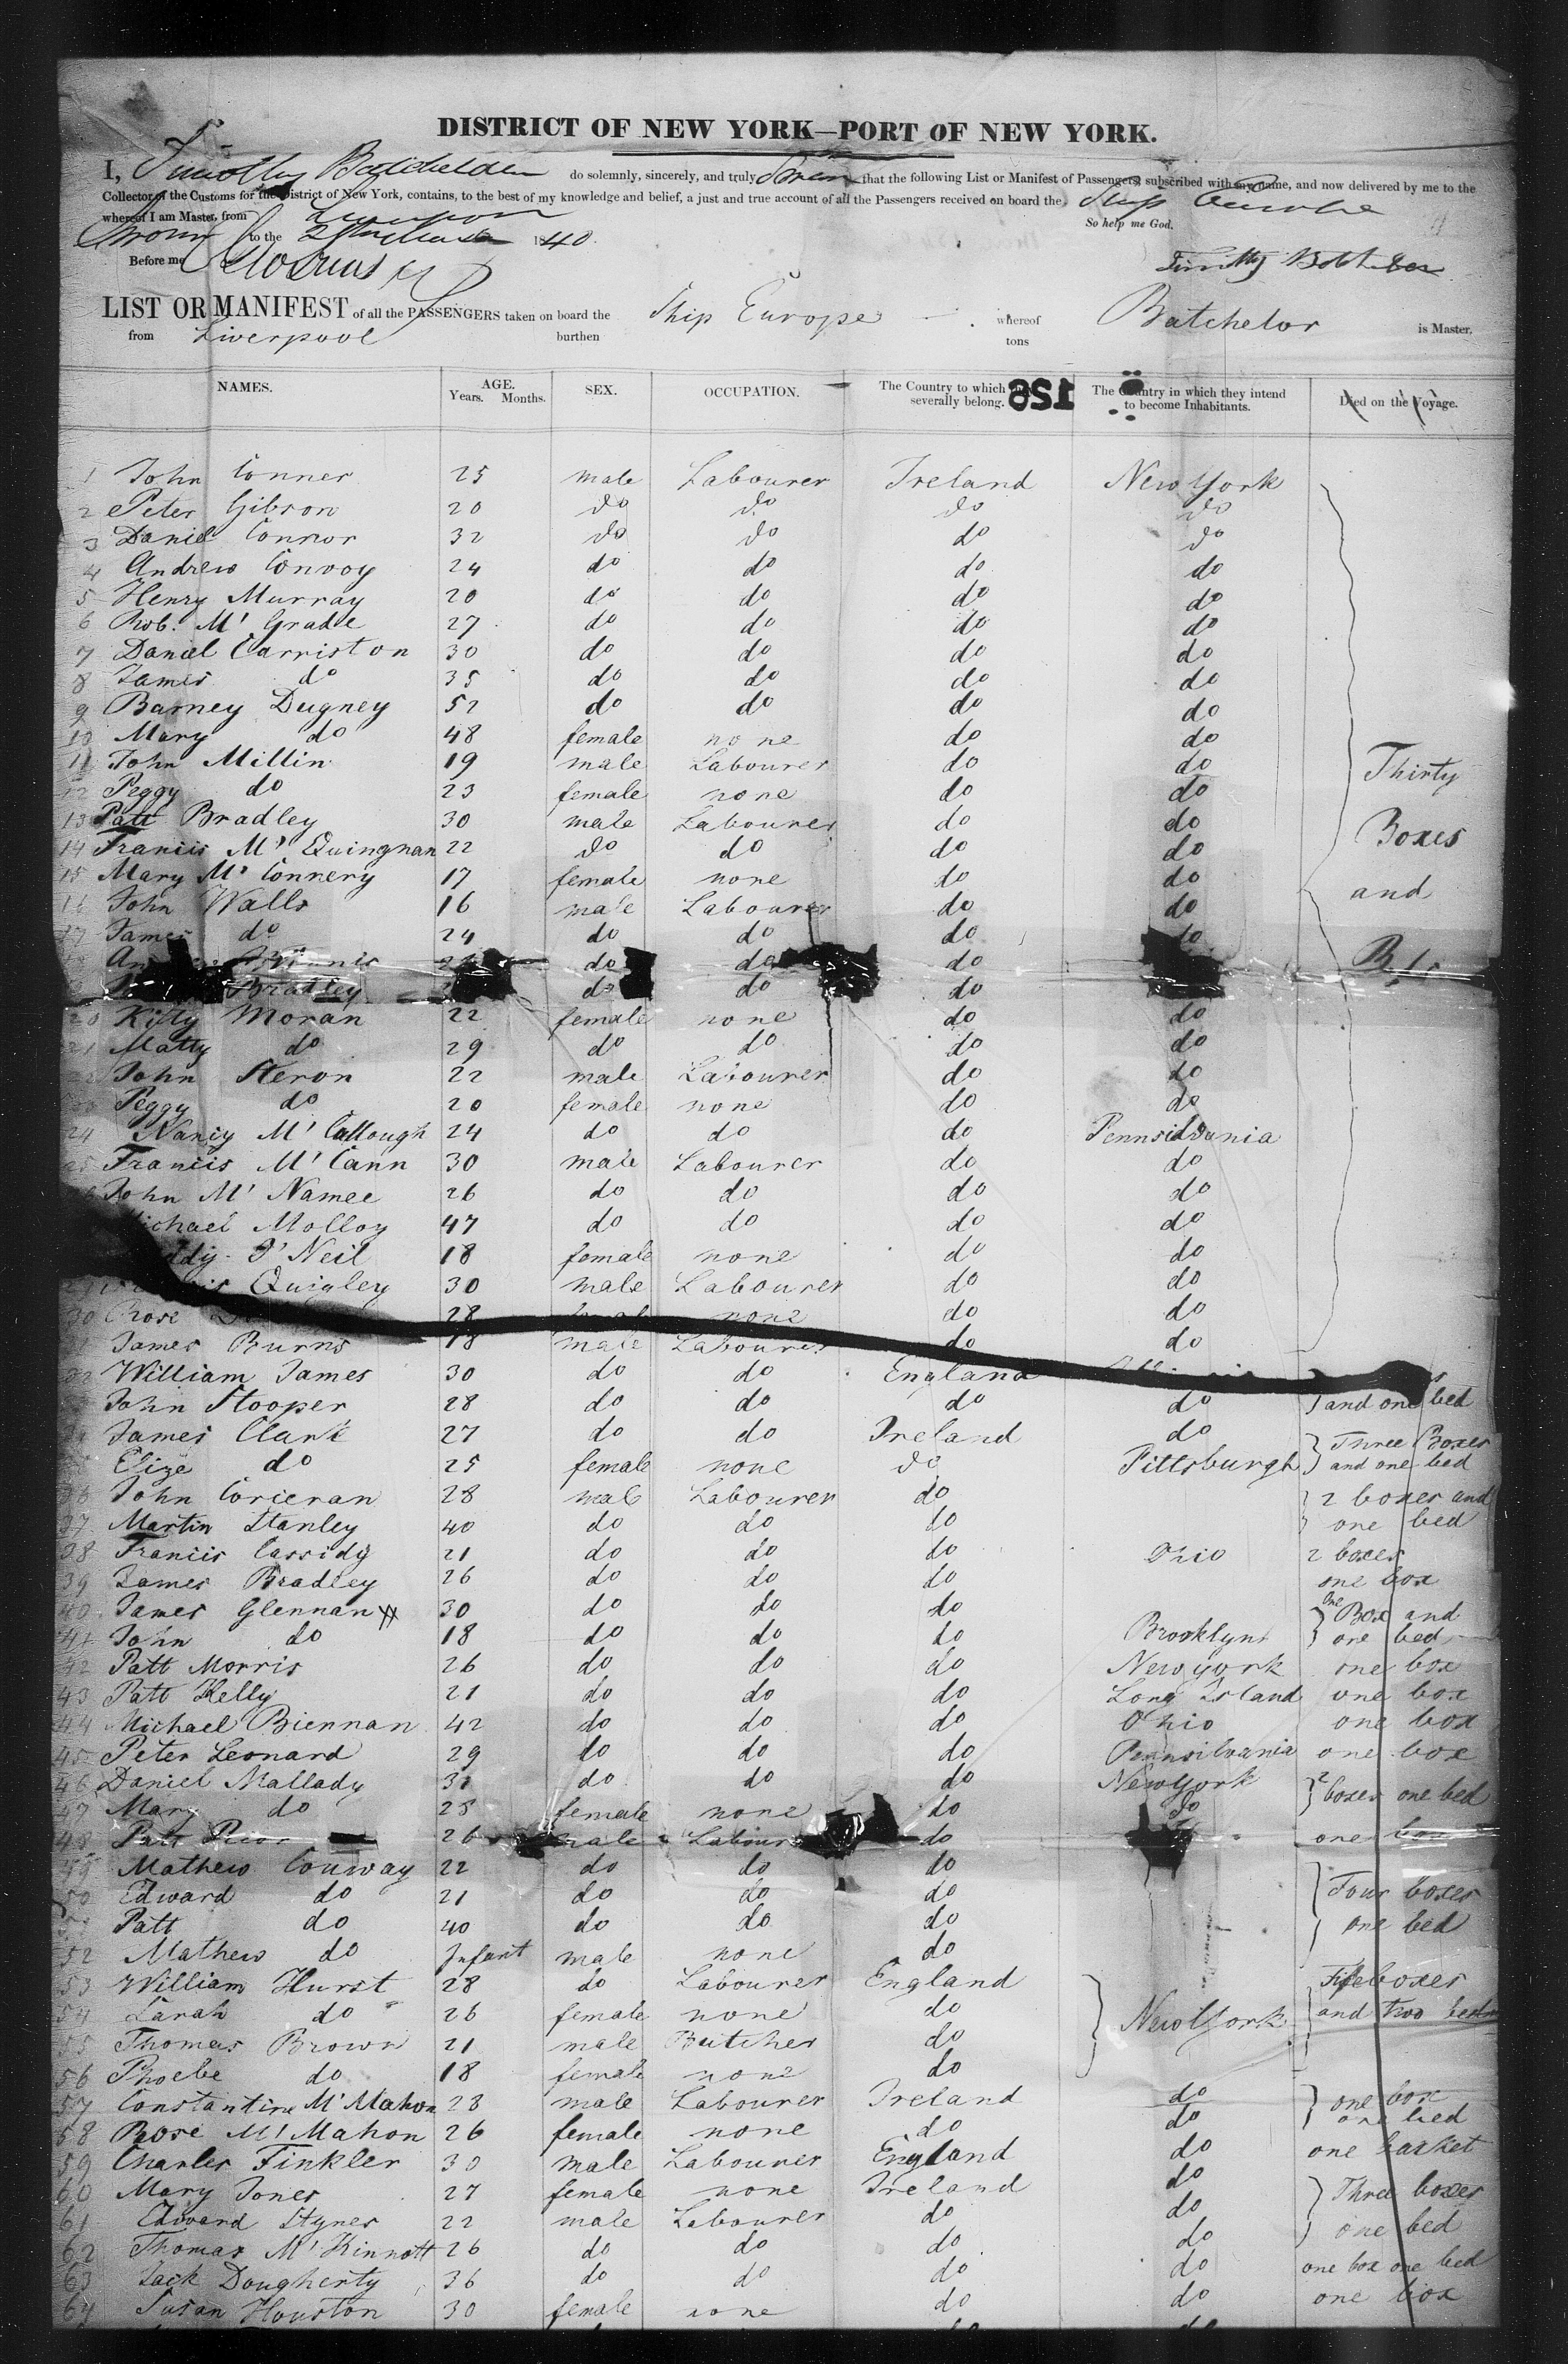 DISTRICT OF NEW YORK—PORT OF NEW YORK.
I, Timothy Batchelder do solemnly, sincerely, and truly that the following List or Manifest of Passengers, subscribed with my name, and now delivered by me to the
Collector of the Customs for the District of New York, contains, to the best of my knowledge and belief, a just and true account of all the Passengers received on board the Ship Europe
whereof I am Master, from Liverpool
So help me God.
Sworn to the 1840.
Before me
LIST OR MANIFEST of all the PASSENGERS taken on board the Ship Europe whereof Batchelor is Master,
from Liverpool burthen tons
NAMES. AGE. SEX. OCCUPATION. The Country to which they The Country in which they intend Died on the Voyage.
Years. Months. severally belong. to become Inhabitants.
128
1 John Conner 25 male Labourer Ireland New York
2 Peter Gibson 20 do do do do
3 Daniel Connor 32 do do do do
4 Andrew Convoy 24 do do do do
5 Henry Murray 20 do do do do
6 Rob. Mc Grade 27 do do do do
7 Daniel Carriston 30 do do do do
8 James do 35 do do do do
9 Barney Dugney 52 do do do do
10 Mary do 48 female none do do
11 John Millin 19 male Labourer do do Thirty
12 Peggy do 23 female none do do
13 Patt Bradley 30 male Labourer do do Boxes
14 Francis Mc Quingnan 22 do do do do
15 Mary Mc Connery 17 female none do do and
16 John Walls 16 male Labourer do do
17 James do 24 do do do do
do do do
Bradley do do do
20 Kitty Moran 22 female none do do
21 Matty do 29 do do do do
22 John Heron 22 male Labourer do do
Peggy do 20 female none do do
24 Nancy Mc Cullough 24 do do do Pennsilvania
25 Francis Mc Cann 30 male Labourer do do
John Mc Namee 26 do do do do
Michael Molloy 47 do do do do
O'Neil 18 female none do do
Quigley 30 male Labourer do do
30 Rose 28 none do do
James Burns 18 male Labourer do do
William James 30 do do England
John Hooper 28 do do do do and one bed
James Clark 27 do do Ireland do Three Boxes
Elize do 25 female none do Pittsburgh and one bed
36 John Corieran 28 male Labourer do 2 boxes and
37 Martin Stanley 40 do do do one bed
38 Francis Cassidy 21 do do do Ohio 2 boxes
39 James Bradley 26 do do do one box
40 James Glennan 30 do do do One Box and
41 John do 18 do do do Brooklyn one bed
42 Patt Morris 26 do do do New york one box
43 Patt Kelly 21 do do do Long Island one box
44 Michael Biennan 42 do do do Ohio one box
45 Peter Leonard 29 do do do Pennsilvania one box
46 Daniel Mallady 31 do do do New York 2
47 Mary do 25 female none do do boxes one bed
48 Patt Prior 26 male Labour do one box
Mathew Conway 22 do do do
50 Edward do 21 do do do Four boxes
Patt do 40 do do do one bed
52 Mathew do Infant male none do
53 William Hurst 28 do Labourer England Five boxes
54 Sarah do 26 female none do New York and two beds
55 Thomas Brown 21 male Butcher do
56 Phoebe do 18 female none do
57 Constantine Mc Mahon 28 male Labourer Ireland do one box
58 Rose Mc Mahon 26 female none do do one bed
59 Charles Finkler 30 male Labourer England do one basket
60 Mary Jones 27 female none Ireland do Three boxes
61 Edward Hynes 22 male Labourer do do one bed
62 Thomas Mc Kinnott 26 do do do do
63 Jack Dougherty 36 do do do do one box one bed
64 Susan Houston 30 female none do do one box